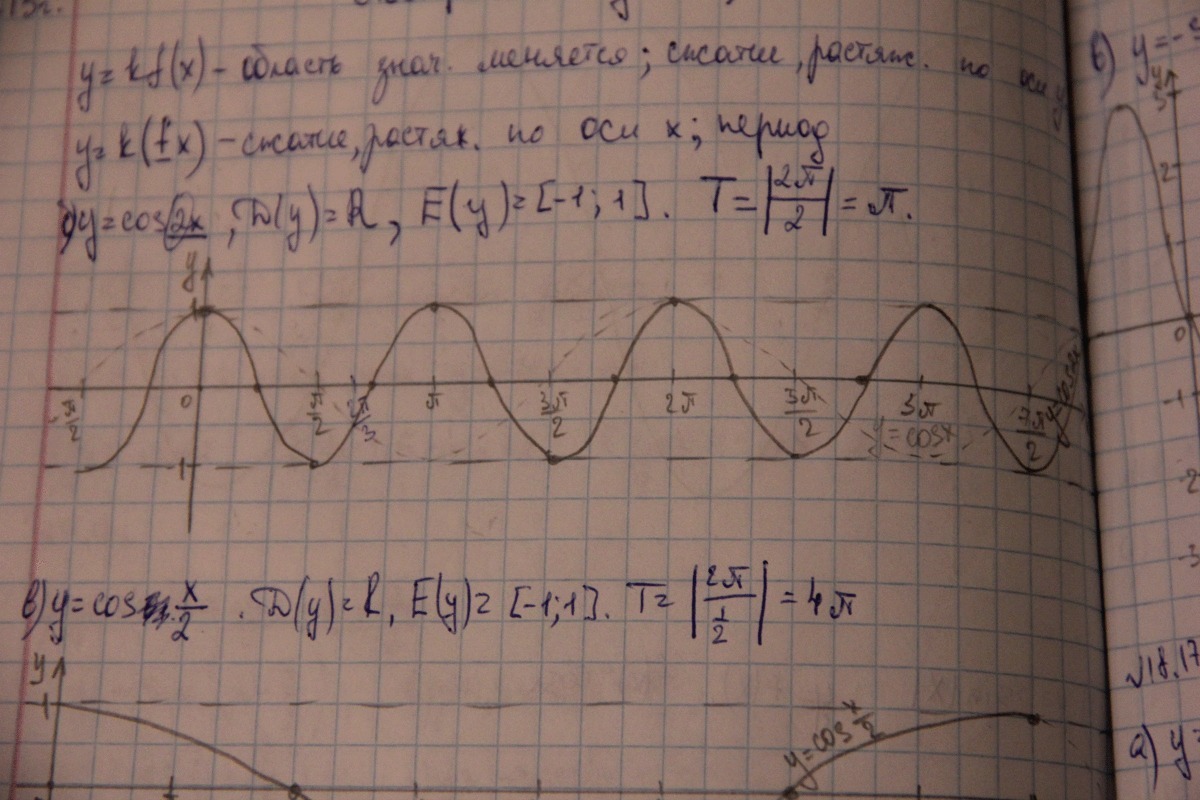 y = kf(x) – область знач. меняется; сжатие, растяж. по оси y
y = k(fx) – сжатие, растяж. по оси x; период
y = cos 2x, D(y) = R, E(y) = [-1; 1]. T = |2π/2| = π.
y
1
-π/2 0 π/2 2π/3 π 3π/2 2π 3π/2 3π 7π/2
y = cosx
-1
в) y = cos x/2. D(y) = R, E(y) = [-1; 1]. T = |2π/(1/2)| = 4π
y
1
y = cos x/2
в) y = -
y
3
2
0
-1
-2
-3
√18.17
а) y =